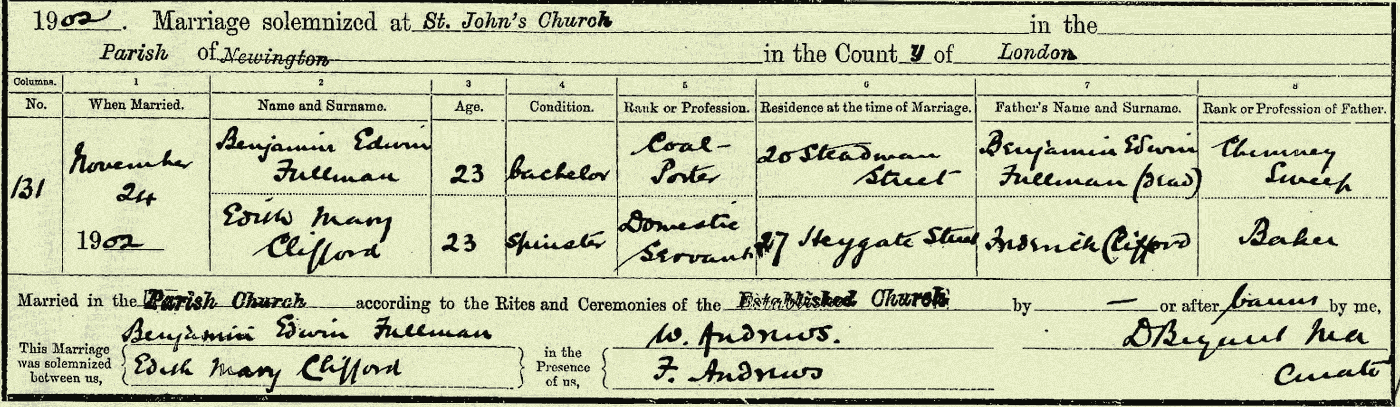 1902. Marriage solemnized at St. John's Church in the
Parish of Newington in the County of London
Columns. 1 2 3 4 5 6 7 8
No. When Married. Name and Surname. Age. Condition. Rank or Profession. Residence at the time of Marriage. Father's Name and Surname. Rank or Profession of Father.
131 November 24 1902
Benjamin Edwin Fullman 23 bachelor Coal-Porter 20 Steadman Street Benjamin Edwin Fullman (dead) Chimney Sweep
Edith Mary Clifford 23 Spinster Domestic Servant 27 Heygate Street Frederick Clifford Baker
Married in the Parish Church according to the Rites and Ceremonies of the Established Church by — or after banns by me,
This Marriage was solemnized between us,
Benjamin Edwin Fullman
Edith Mary Clifford
in the Presence of us,
W. Andrews.
F. Andrews
D Bryant MA
Curate